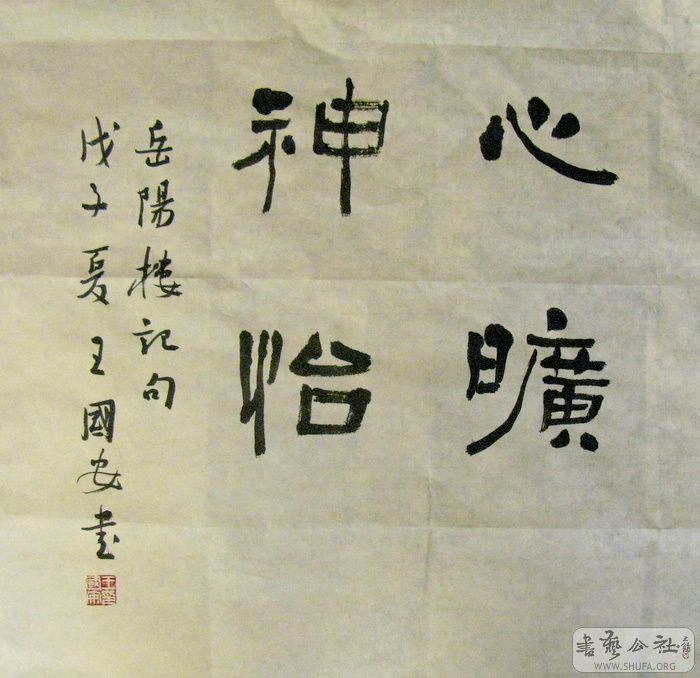 心曠
神怡
岳陽樓記句
戊子夏王國安書
書藝公社
WWW.SHUFA.ORG